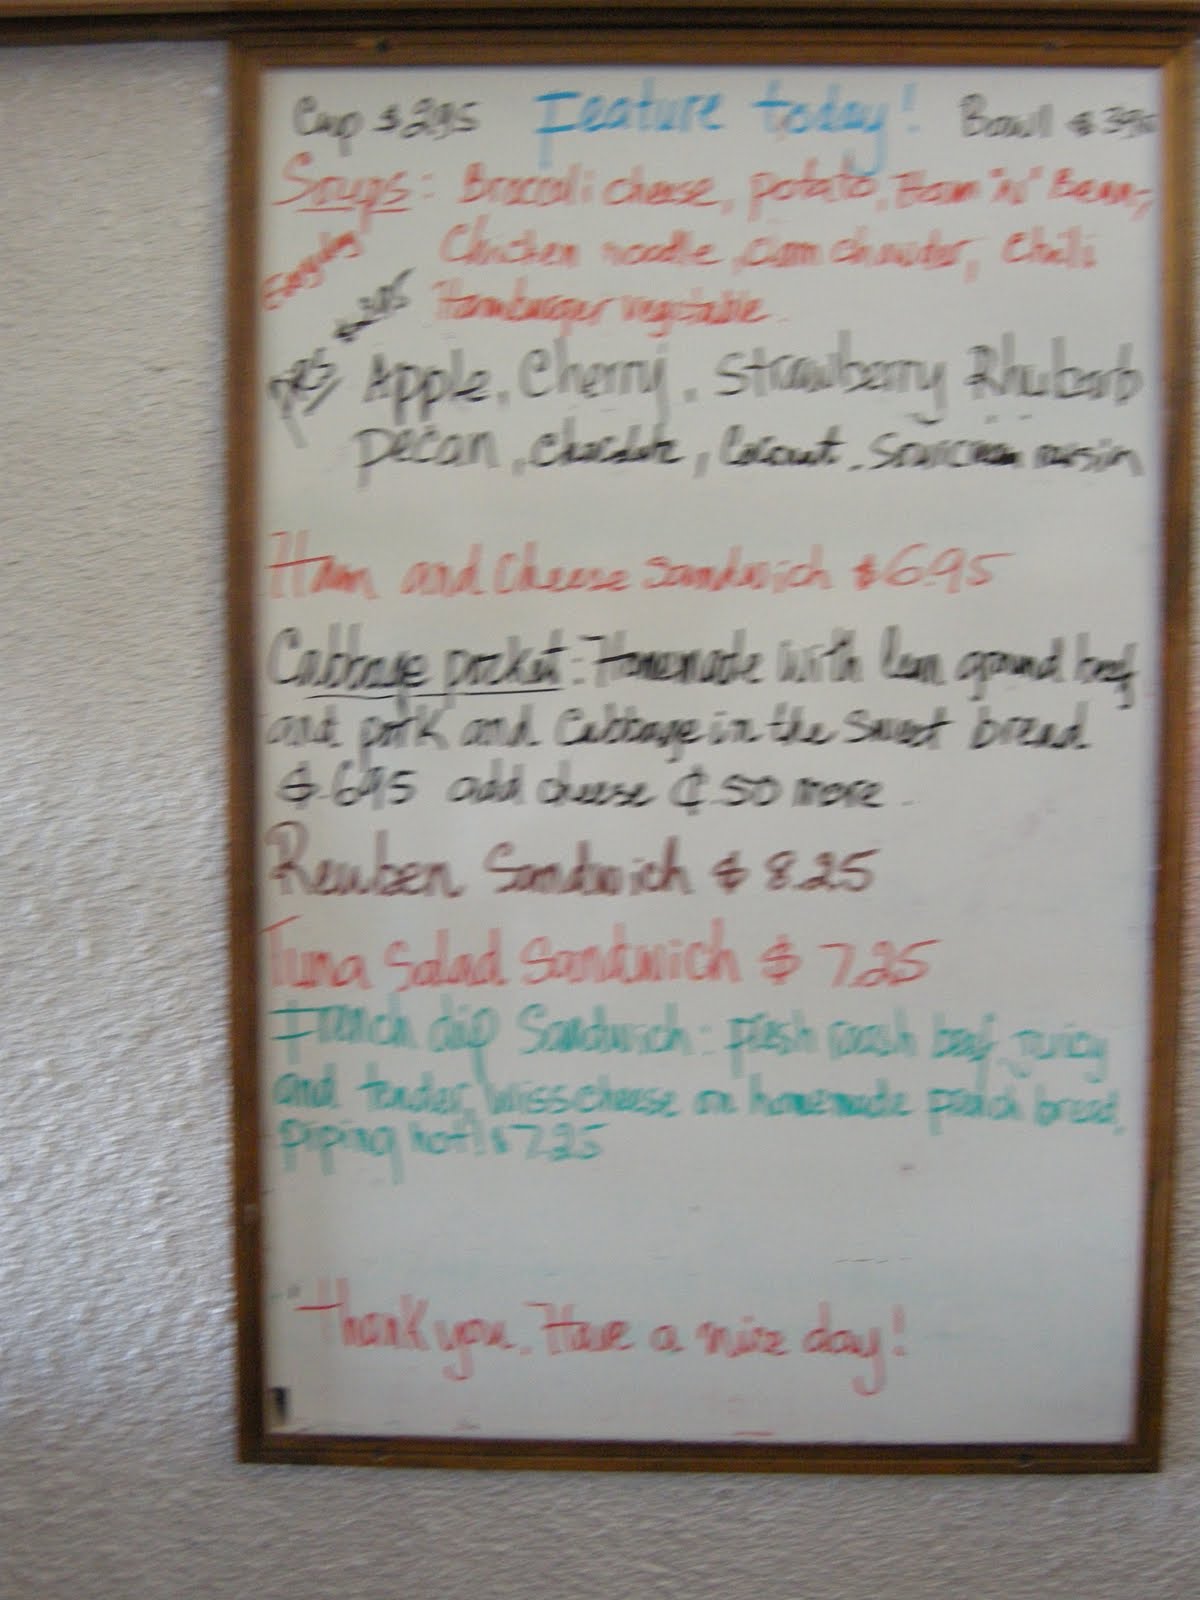 Cup $2.95 Feature today! Bowl $3.95
Soups: Broccoli cheese, potato, Ham "n" Bean,
Chicken noodle, clam chowder, Chili
Hamburger vegetable.
Pies $2.95 Apple, Cherry, Strawberry Rhubarb
pecan, chocolate, Coconut, Sourcream raisin
Ham and cheese sandwich $6.95
Cabbage pocket: Homemade with lean ground beef
and pork and Cabbage in the sweet bread
$6.95 add cheese ¢.50 more.
Reuben Sandwich $8.25
Tuna Salad Sandwich $7.25
French dip Sandwich: fresh roast beef, juicy
and tender, swiss cheese on homemade french bread,
piping hot! $7.25
Thank you. Have a nice day!